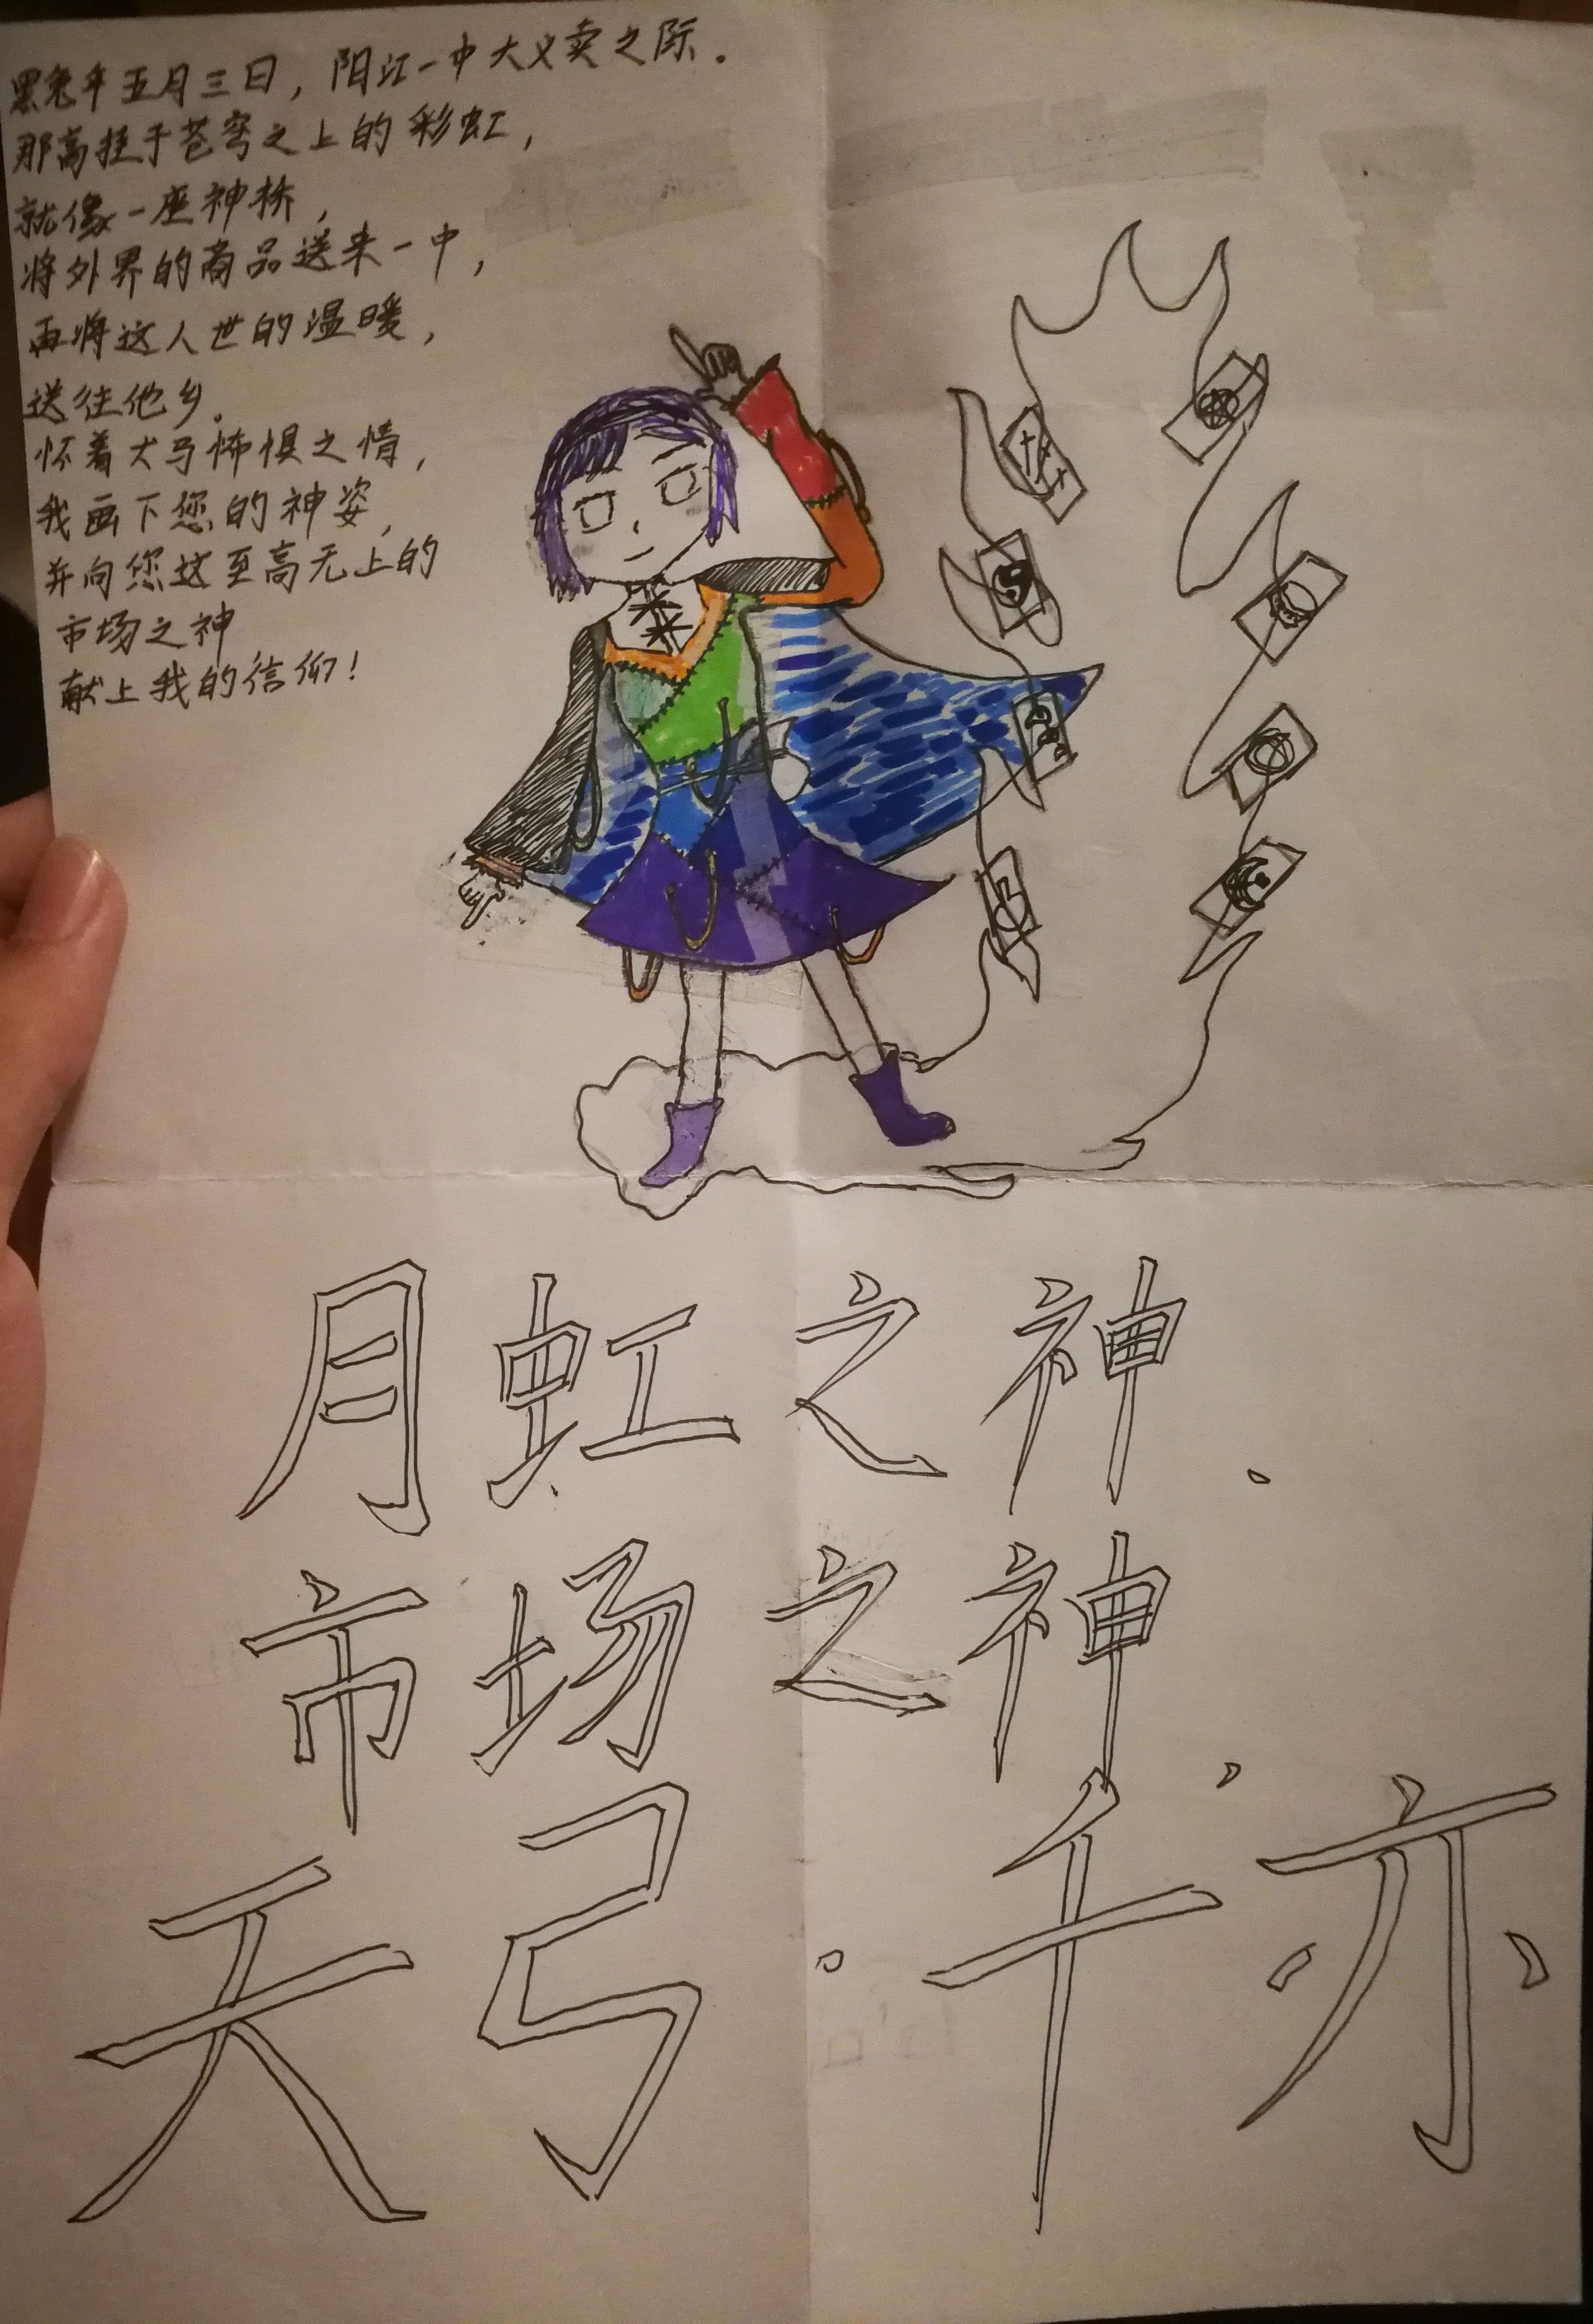 黑兔年五月三日，阳江一中大义卖之际。
那高挂于苍穹之上的彩虹，
就像一座神桥，
将外界的商品送来一中，
再将这人世的温暖，
送往他乡。
怀着犬马怖惧之情，
我画下您的神姿，
并向您这至高无上的
市场之神
献上我的信仰！
月虹之神、
市场之神、
天弓·千亦